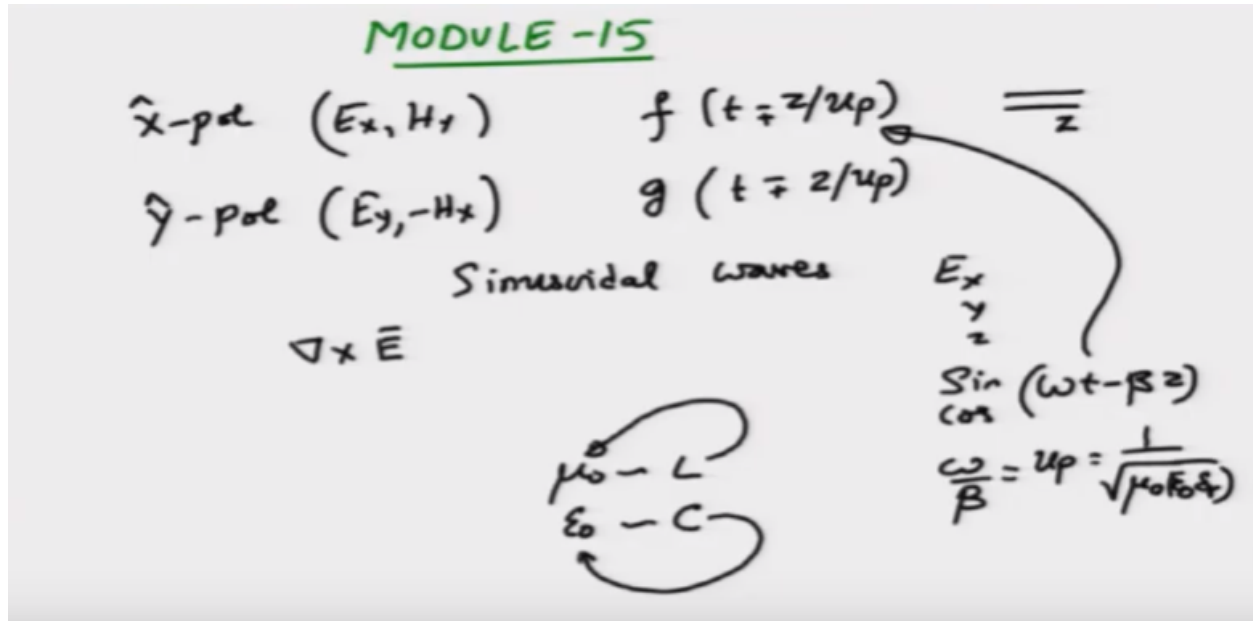 MODULE -15
x̂-pol (Ex, Hy) f (t ∓ z/up) z
ŷ-pol (Ey, -Hx) g (t ∓ z/up)
Sinusoidal waves Ex
y
z
∇ x Ē
Sin (ωt-βz)
cos
μ0 ~ L
ω/β = up = 1/√(μ0ε0εr)
ε0 ~ C